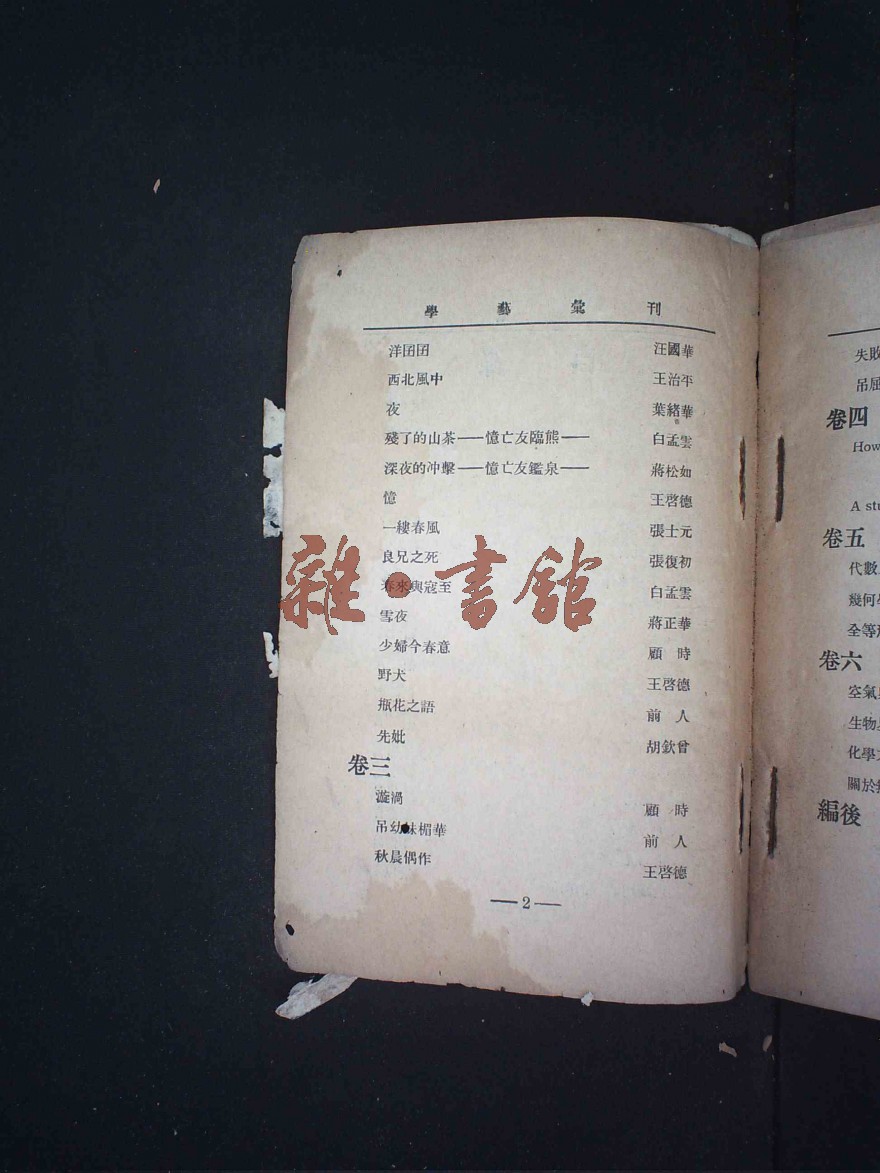 學藝彙刊
洋囝囝 汪國華
西北風中 王治平
夜 葉緒華
殘了的山茶——憶亡友臨熊—— 白孟雲
深夜的冲擊——憶亡友鑑泉—— 蔣松如
憶 王啓德
一縷春風 張士元
良兄之死 張復初
春來與寇至 白孟雲
雪夜 蔣正華
少婦今春意 顧時
野犬 王啓德
瓶花之語 前人
先妣 胡欽曾
卷三
漩渦 顧時
吊幼妹楣華 前人
秋晨偶作 王啓德
—2—
雜·書館
失敗
吊屈
卷四
How
A stu
卷五
代數
幾何學
全等形
卷六
空氣
生物
化學
關於
編後